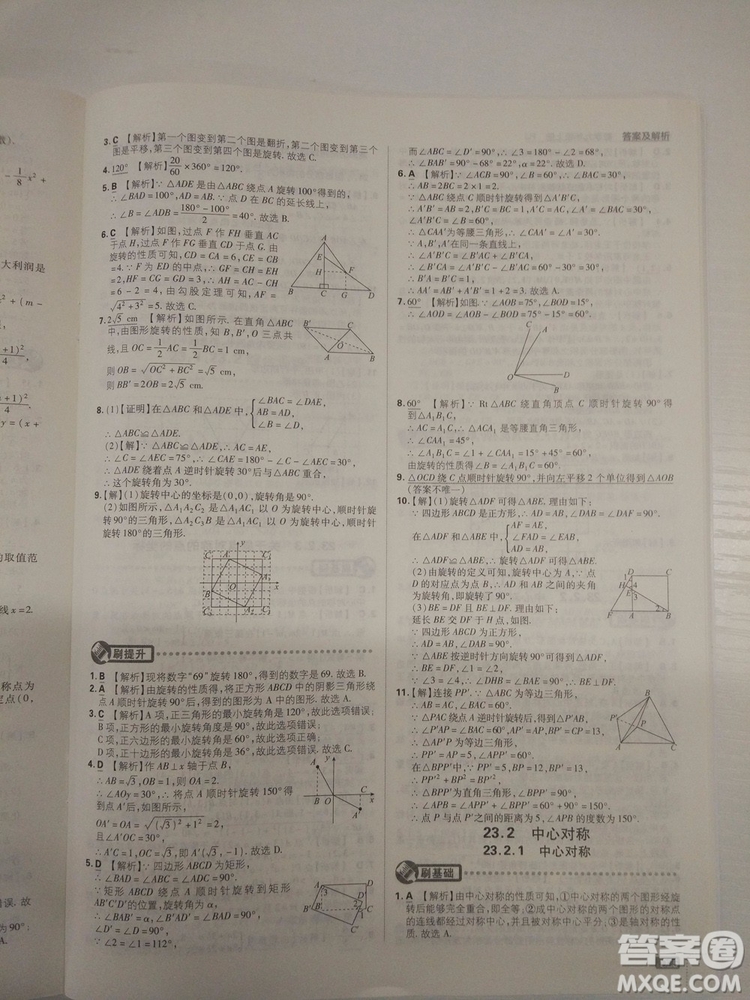 答案及解析
3. C 【解析】第一个图变到第二个图是翻折,第二个图变到第三个
图是平移,第三个图变到第四个图是旋转.故选 C.
4. 120° 【解析】20/60×360°=120°.
5. B 【解析】∵△ADE 是由△ABC 绕点 A 旋转 100°得到的,
∴∠BAD=100°,AD=AB.∵点 D 在 BC 的延长线上,
∴∠B=∠ADB=(180°-100°)/2=40°.故选 B.
6. C 【解析】如图,过点 F 作 FH⊥AC
于点 H,过点 F 作 FG⊥CD 于点 G.由
旋转的性质可知 CD=CA=6,CE=CB
=4.∵F 为 ED 的中点,∴GF=CH=EH
=2,HF=CG=GD=3,∴AH=AC-CH
=6-2=4,由勾股定理可知,AF=
√(4²+3²)=5.故选 C.
7. 2√5 cm 【解析】如图所示.在直角△ABC
中,由图形旋转的性质知,B,B′,O 三点共
线,且 OC=1/2AC=1/2BC=1 cm,
则 OB=√(OC²+BC²)=√5 cm,
则 BB′=2OB=2√5 cm.
8. (1)【证明】在△ABC 和△ADE 中,{∠BAC=∠DAE,
AB=AD,
∠B=∠D,
∴△ABC≌△ADE.
(2)【解】∵△ABC≌△ADE,∴AC=AE,
∴∠C=∠AEC=75°,∴∠CAE=180°-∠C-∠AEC=30°,
∴△ADE 绕着点 A 逆时针旋转 30°后与△ABC 重合,
∴这个旋转角为 30°.
9. 【解】(1)旋转中心的坐标是(0,0),旋转角是 90°.
(2)如图所示,△A₁A₂C₂ 是△A₁AC₁ 以 O 为旋转中心,顺时针旋
转 90°的三角形,△A₂C₃B 是△A₁AC₁ 以 O 为旋转中心,顺时针
旋转 180°的三角形.
刷提升
1. B 【解析】现将数字“69”旋转 180°,得到的数字是 69.故选 B.
2. A 【解析】由旋转的性质得,将正方形 ABCD 中的阴影三角形绕
点 A 顺时针旋转 90°后,得到的图形为 A 中的图形,故选 A.
3. C 【解析】A 项,正三角形的最小旋转角是 120°,故此选项错误;
B 项,正方形的最小旋转角度是 90°,故此选项错误;
C 项,正六边形的最小旋转角度是 60°,故此选项正确;
D 项,正十边形的最小旋转角是 36°,故此选项错误.故选 C.
4. D 【解析】作 AB⊥x 轴于点 B,
∴AB=√3,OB=1,则 OA=2.
∴∠AOy=30°,∴OA 顺时针旋转 150°得
到点 A′后,如图所示,
OA′=OA=√((√3)²+1²)=2,
且∠A′OC=30°,
∴A′(√3,-1).故选 D.
5. D 【解析】∵四边形 ABCD 为矩形,
∴∠BAD=∠ABC=∠ADC=90°.
∵矩形 ABCD 绕点 A 顺时针旋转到矩形
AB′C′D′的位置,旋转角为 α,
∴∠BAB′=α,∠B′AD′=∠BAD=90°,
∠D′=∠D=90°,
∵∠2=∠1=112°,
而∠ABC=∠D′=90°,∴∠3=180°-∠2=68°,
∴∠BAB′=90°-68°=22°,即∠α=22°.故选 D.
6. A 【解析】∵∠ACB=90°,∠B=30°,BC=√3,
∴AB=2AC=2.
∵△ABC 绕点 C 顺时针旋转得到△A′B′C,
∴A′B′=AB=2,B′C=BC,A′C=AC=1,
∠A′B′C=∠B=30°,
∴△CAA′为等腰三角形.
∵A,B′,A′在同一条直线上,
∴∠A′B′C=∠B′AC+∠B′CA,
∴∠B′CA=∠B′AC=60°-30°=30°,
∴B′A=B′C=1,
∴AA′=AB′+A′B′=1+2=3.故选 A.
7. 60° 【解析】如图.∵∠AOB=75°,∠BOD=15°,
∴∠AOD=∠AOB-∠BOD=75°-15°=60°.
8. 60° 【解析】∵Rt△ABC 绕直角顶点 C 顺时针旋转 90°得
到△A₁B₁C,
∴AC=A₁C,∴△ACA₁ 是等腰直角三角形,
∴∠CAA₁=45°,
∴∠CA₁B₁+∠1=45°+15°=60°.
由旋转的性质得∠B=∠A₁B₁C=60°.
9. △OCD 绕 C 点顺时针旋转 90°,并向左平移 2 个单位得到△AOB
(答案不唯一)
10. 【解】(1)旋转△ADF 可得△ABE.理由如下:
∵四边形 ABCD 是正方形,∴AD=AB.
在△ADF 和△ABE 中,{AF=AE,
∠FAD=∠EAB,
AD=AB,
∴△ADF≌△ABE,∴旋转△ADF 可得△ABE.
(2)由旋转的定义可知,旋转中心为点 A,点
D 的对应点为点 B,∴AD 与 AB 之间的夹角
为旋转角,即旋转角为 90°.
(3)BE=DF 且 BE⊥DF.理由如下:
延长 BE 交 DF 于 H 点,如图.
∵四边形 ABCD 为正方形,
∴AD=AB,∠DAB=90°.
∵△ABE 按逆时针方向旋转 90°得到△ADF,
∴BE=DF,∠1=∠2,
∵∠3=∠4,∴∠DHB=∠BAE=90°,
∴BE⊥DF.
11. 【解】连接 PP′,∵△ABC 为等边三角形,
∴AB=AC,
∴∠BAC=60°,
∵△PAC 绕点 A 逆时针旋转后,得到△P′AB,
∴∠P′AP=∠BAC=60°,P′A=PA,P′B=PC=13,
∴△APP′为等边三角形,
∴PP′=AP=5,∠APP′=60°,
在△BPP′中,∵PP′=5,BP=12,P′B=13,
∴PP′²+BP²=BP′²,
∴△BPP′为直角三角形,∠BPP′=90°,
∴∠APB=∠APP′+∠BPP′=60°+90°=150°,
∴点 P 与点 P′之间的距离为 5,∠APB 的度数为 150°.
23.2 中心对称
23.2.1 中心对称
刷基础
1. A 【解析】由中心对称的性质可知,①中心对称的两个图形经旋
转后能够完全重合;②成中心对称的两个图形的对称点
的连线都经过对称中心,并且被对称中心平分;③是轴对称的性
质.故选 A.
答案圈
MXQE.COM